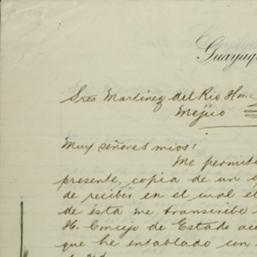 Guayaq
Sres Martinez del Rio Hnos
Mejico
Muy señores mios:
Me permit
presente, copia de un o
de recibir en el cual el
de ésta me transcribe
H. Consejo de Estado ac
que he entablado con